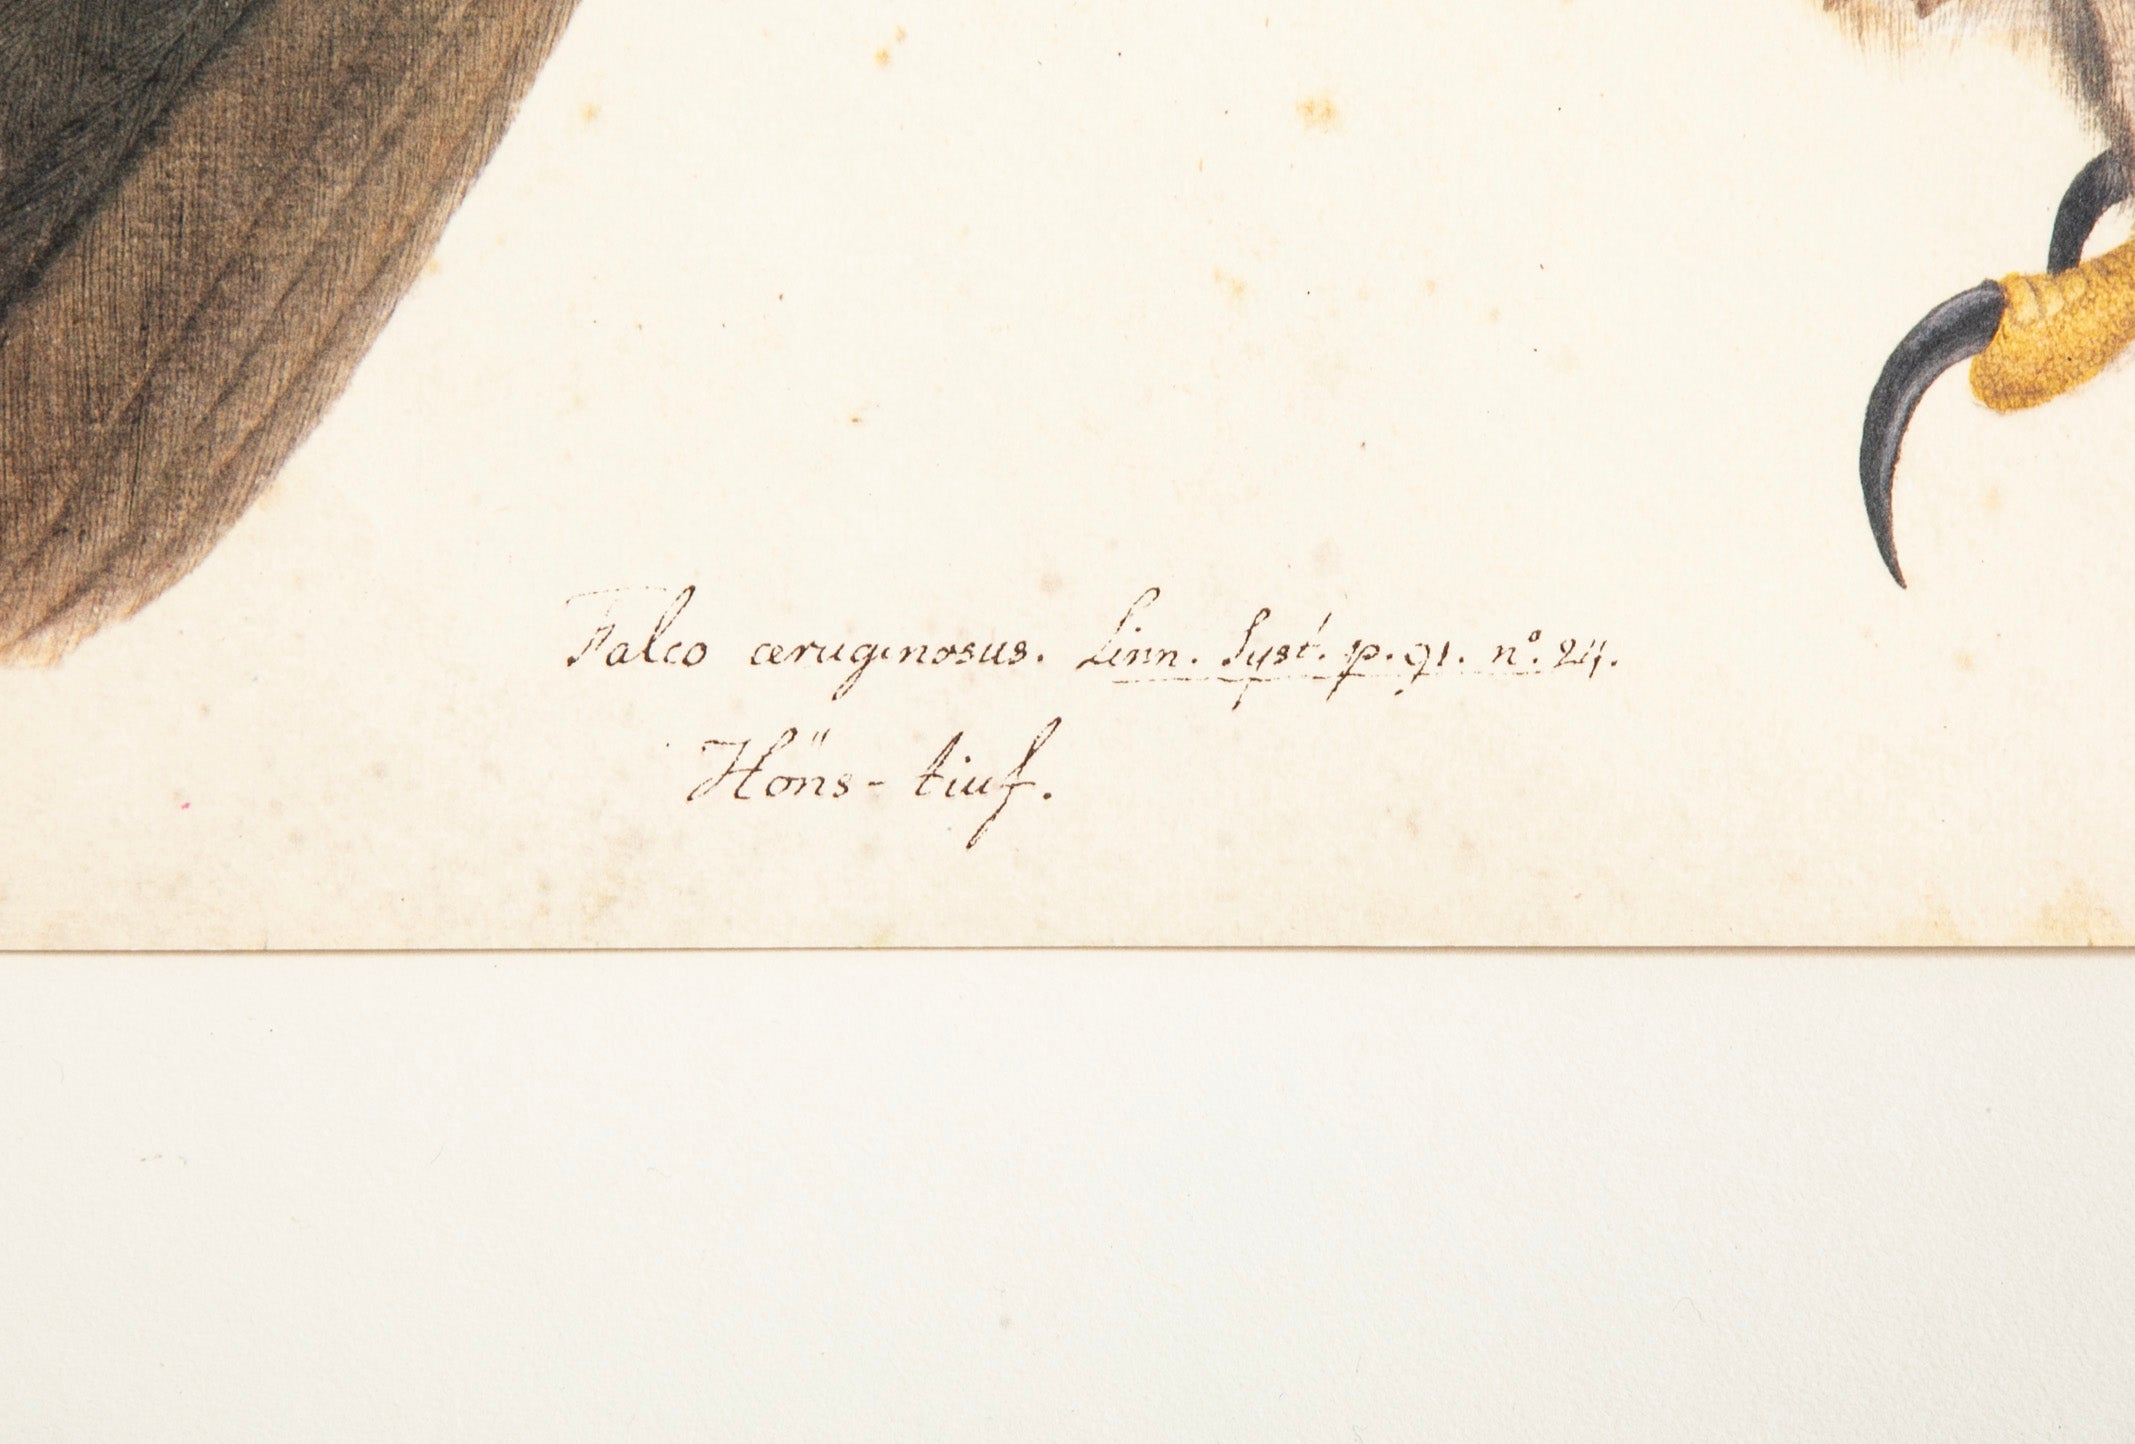 Falco æruginosus. Linn. Syst. p. 91. nº. 24.
Höns-tiuf.